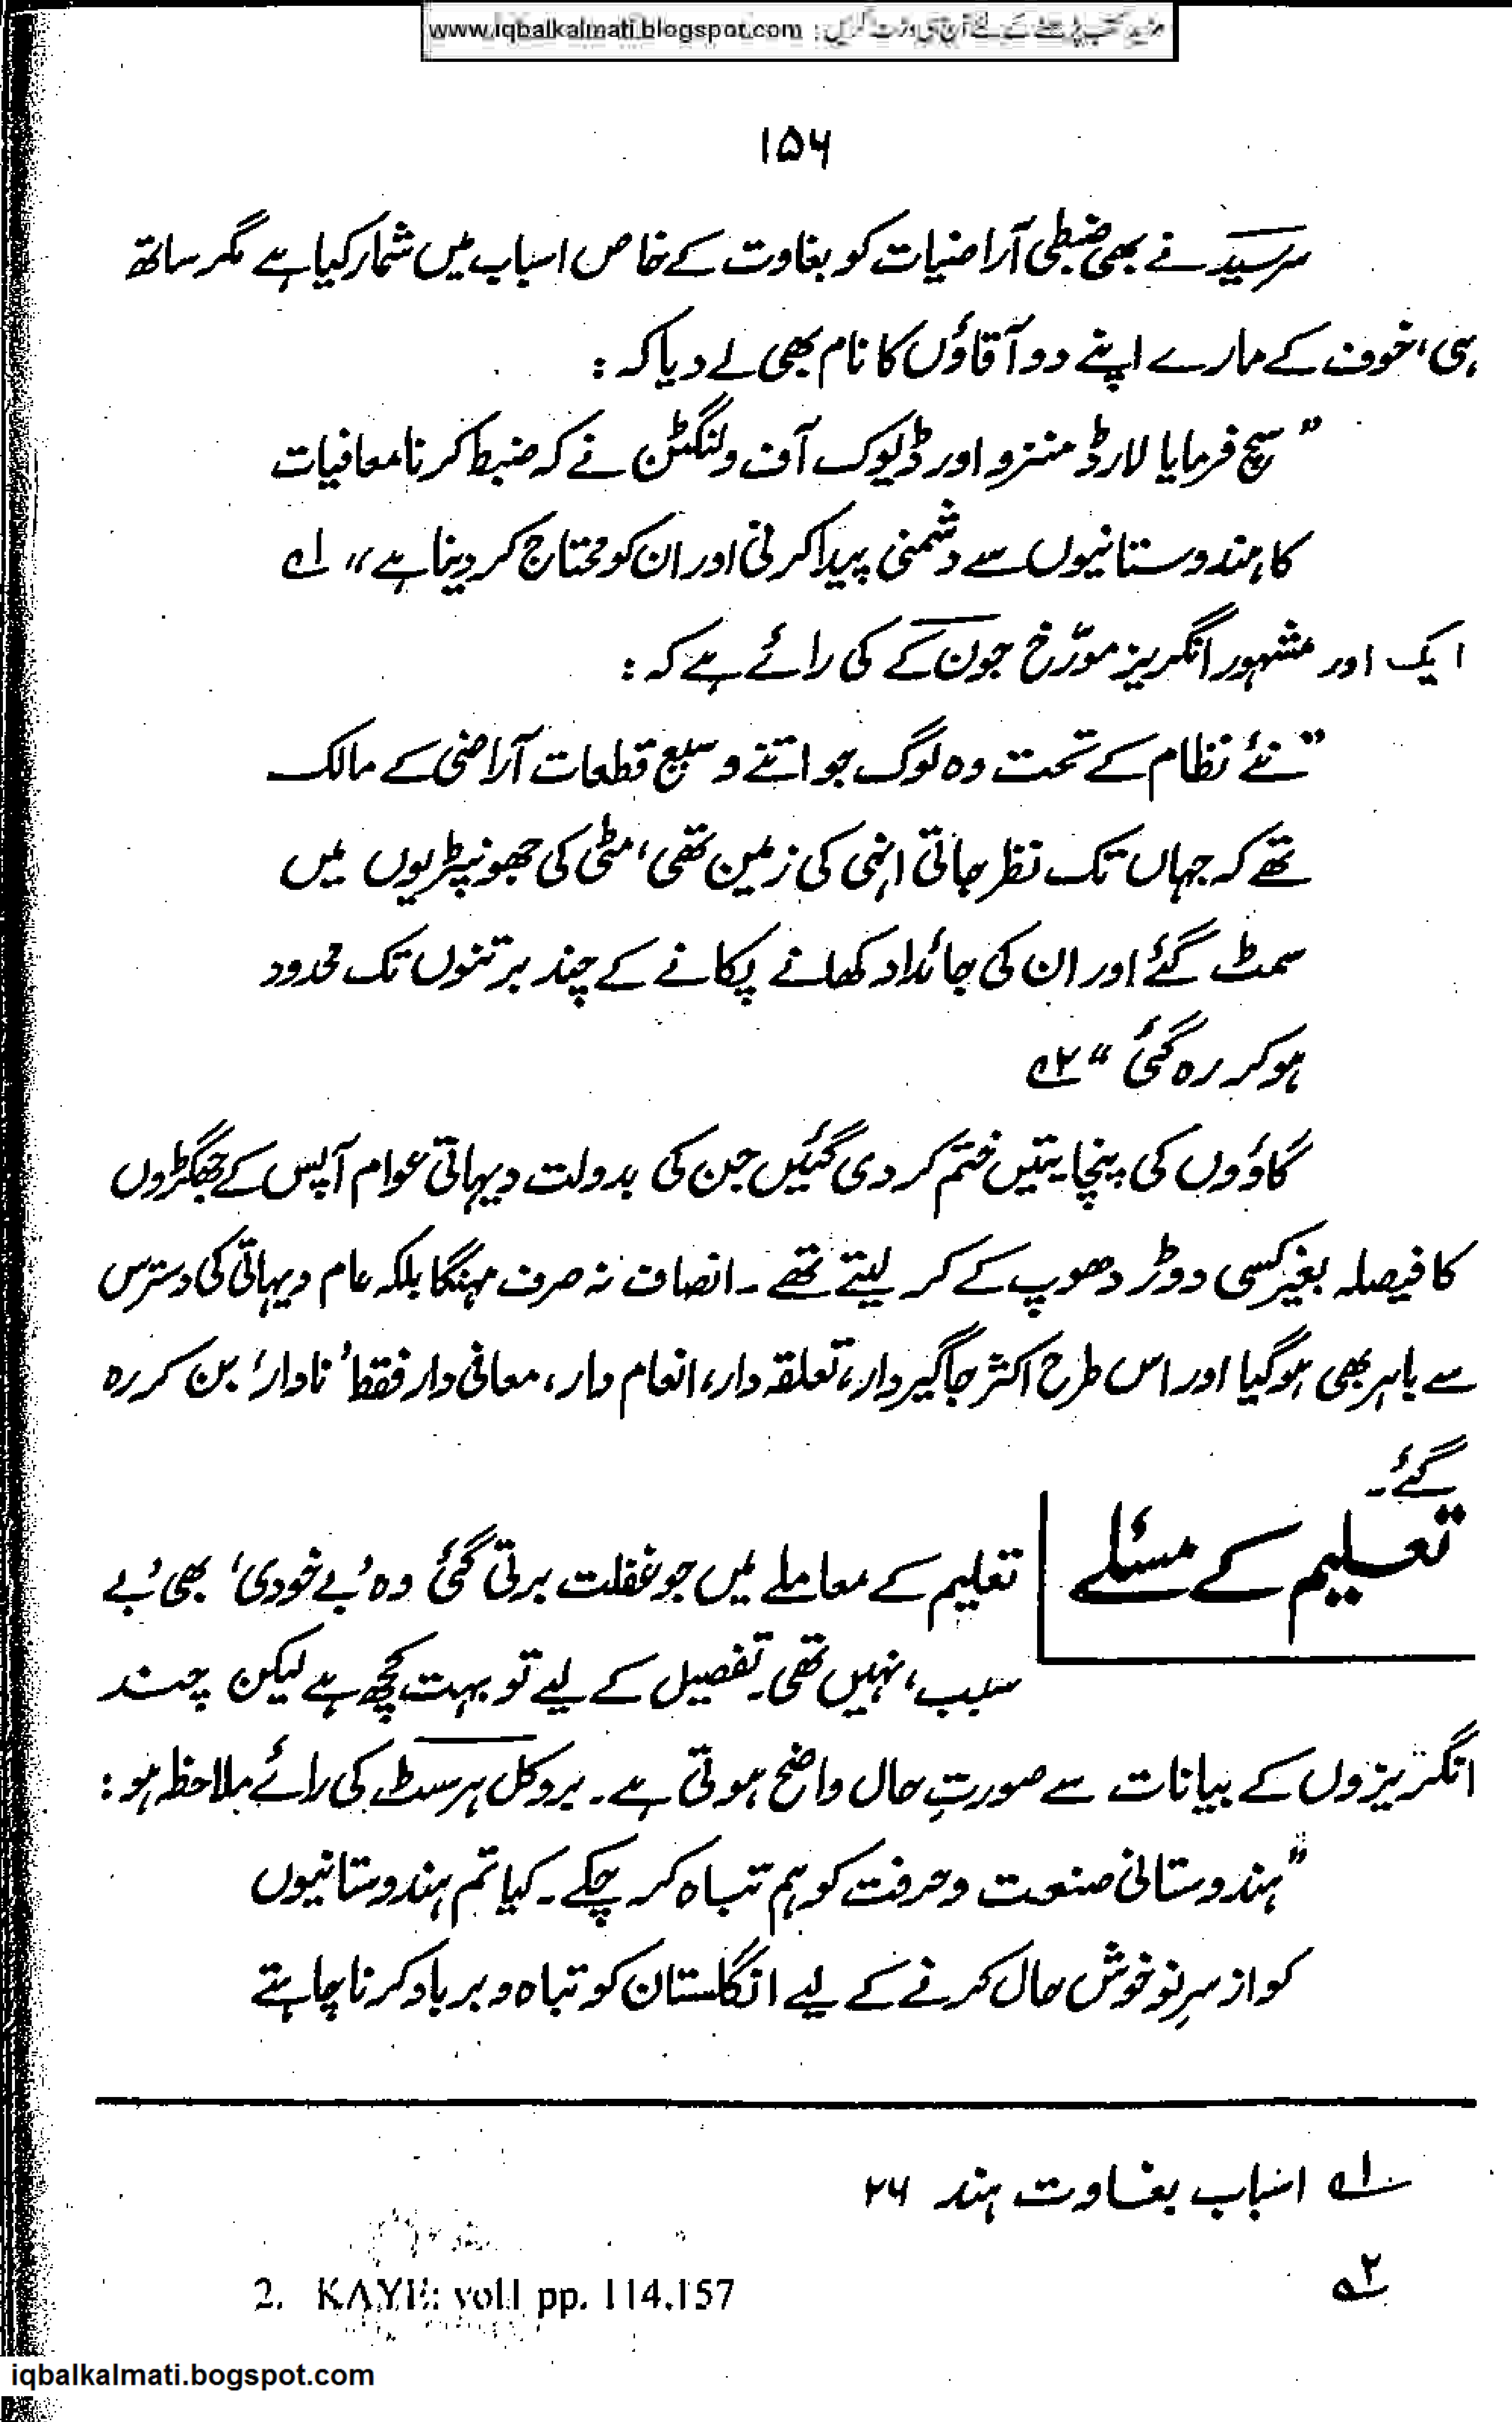 مزید کتب پڑھنے کے لئے آج ہی وزٹ کریں : www.iqbalkalmati.blogspot.com
۱۵۶
سرسید نے بھی ضبطی آراضیات کو بغاوت کے خاص اسباب میں شمار کیا ہے مگر ساتھ
ہی، خوف کے مارے اپنے دو آقاؤں کا نام بھی لے دیا کہ :
”سچ فرمایا لارڈ منزو اور ڈیوک آف ولنگٹن نے کہ ضبط کرنا معافیات
کا ہندوستانیوں سے دشمنی پیدا کرنی اور ان کو محتاج کر دینا ہے“ ۱؎
ایک اور مشہور انگریز مورّخ جون کے کی رائے ہے کہ :
”نئے نظام کے تحت وہ لوگ جو اتنے وسیع قطعات آراضی کے مالک
تھے کہ جہاں تک نظر جاتی انہی کی زمین تھی، مٹی کی جھونپڑیوں میں
سمٹ گئے اور ان کی جائداد کھانے پکانے کے چند برتنوں تک محدود
ہو کر رہ گئی“ ۲؎
گاؤوں کی پنچایتیں ختم کر دی گئیں جن کی بدولت دیہاتی عوام آپس کے جھگڑوں
کا فیصلہ بغیر کسی دوڑ دھوپ کے کر لیتے تھے ۔ انصاف نہ صرف مہنگا بلکہ عام دیہاتی کی دسترس
سے باہر بھی ہو گیا اور اس طرح اکثر جاگیردار، تعلقہ دار، انعام دار، معافی دار فقط ’نادار‘ بن کر رہ
گئے ۔
تعلیم کے مسئلے
تعلیم کے معاملے میں جو غفلت برتی گئی وہ ’بے خودی‘ بھی ’بے
سبب‘ نہیں تھی۔ تفصیل کے لیے تو بہت کچھ ہے لیکن چند
انگریزوں کے بیانات سے صورتِ حال واضح ہوتی ہے ۔ بروکل ہرسٹ کی رائے ملاحظہ ہو :
”ہندوستانی صنعت و حرفت کو ہم تباہ کر چکے ۔ کیا تم ہندوستانیوں
کو از سرِنو خوش حال کرنے کے لیے انگلستان کو تباہ و برباد کرنا چاہتے
۱؎ اسباب بغاوت ہند ۲۶
۲؎
2. KAYE: vol1 pp. 114,157
iqbalkalmati.bogspot.com